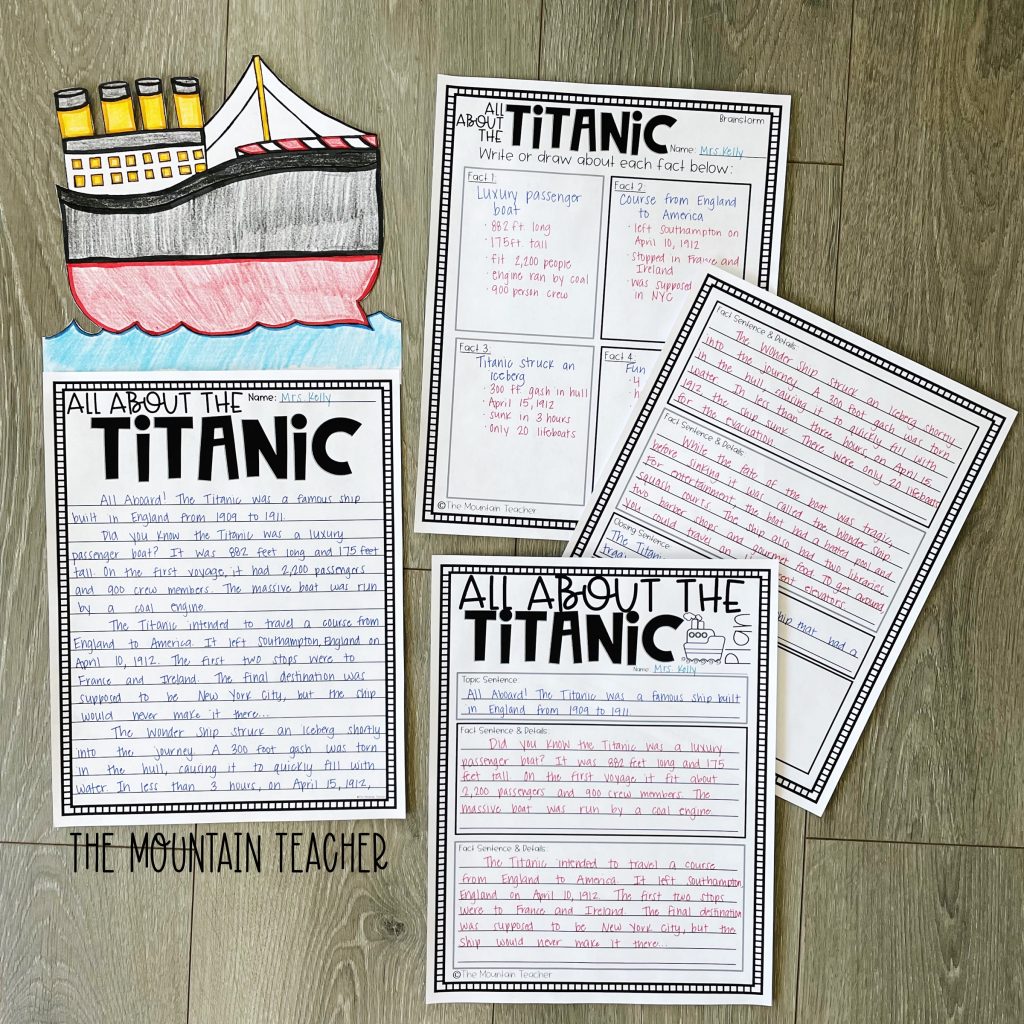 ALL ABOUT THE
Name: Mrs. Kelly
TITANIC
All Aboard! The Titanic was a famous ship
built in England from 1909 to 1911.
Did you know the Titanic was a luxury
passenger boat? It was 882 feet long and 175 feet
tall. On the first voyage, it had 2,200 passengers
and 900 crew members. The massive boat was run
by a coal engine.
The Titanic intended to travel a course from
England to America. It left Southampton, England on
April 10, 1912. The first two stops were to
France and Ireland. The final destination was
supposed to be New York City, but the ship
would never make it there...
The Wonder Ship struck an iceberg shortly
into the journey. A 300 foot gash was torn
in the hull, causing it to quickly fill with
water. In less than 3 hours, on April 15, 1912,
THE MOUNTAIN TEACHER
ALL
ABOUT
THE
TITANIC
Brainstorm
Name: Mrs. Kelly
Write or draw about each fact below:
Fact 1:
Luxury passenger
boat
· 882 ft. long
· 175 ft. tall
· fit 2,200 people
· engine ran by coal
· 900 person crew
Fact 2:
Course from England
to America
· left Southampton on
April 10, 1912
· stopped in France and
Ireland
· was supposed
in NYC
Fact 3:
Titanic struck an
iceberg
· 300 ft gash in hull
· April 15, 1912
· sunk in 3 hours
· only 20 lifeboats
Fact 4:
Fun
· 4
©The Mountain Teacher
Fact Sentence & Details:
The Wonder Ship struck an iceberg shortly
into the journey. A 300 foot gash was torn
in the hull causing it to quickly fill with
water. In less than three hours, on April 15,
1912 the ship sunk. There were only 20 lifeboats
for the evacuation.
Fact Sentence & Details:
While the fate of the boat was tragic,
before sinking it was called the wonder ship
For entertainment, the boat had a heated pool and
squash courts. The ship also had two libraries
two barber shops and gourmet food. To get around,
you could travel on elevators.
Closing Sentence
The Titanic
ship that had a
ALL ABOUT THE
TITANIC
Name: Mrs. Kelly
Topic Sentence:
All Aboard! The Titanic was a famous ship built
in England from 1909 to 1911.
Fact Sentence & Details:
Did you know the Titanic was a luxury
passenger boat? It was 882 feet long and 175
feet tall. On the first voyage it fit about
2,200 passengers and 900 crew members. The
massive boat was run by a coal engine.
Fact Sentence & Details:
The Titanic intended to travel a course
from England to America. It left Southampton,
England on April 10, 1912. The first two stops
were to France and Ireland. The final destination
was supposed to be New York City, but the
ship would never make it there...
©The Mountain Teacher